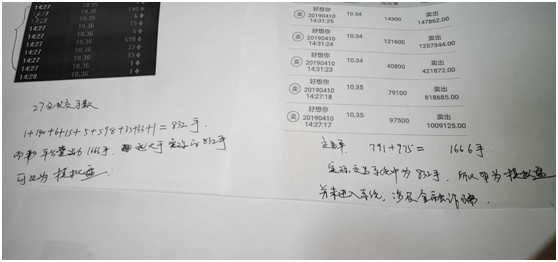 14:27 10.36
14:27 10.36 140
14:27 10.36 6
14:27 10.36 15
14:27 10.36 5
14:27 10.36 598
14:27 10.36 33
14:27 10.36 33
14:27 10.36 1
14:28 10.36
27分成交手数
832手
平台卖出为1666手 远大于实际的832手
可认为模拟盘
卖 好想你 20190410 14:31:25 10.34 14300 卖出 147862.00
卖 好想你 20190410 14:31:24 10.34 121600 卖出 1257344.00
卖 好想你 20190410 14:31:23 10.34 40800 卖出 421872.00
卖 好想你 20190410 14:27:18 10.35 79100 卖出 818685.00
卖 好想你 20190410 14:27:17 10.35 97500 卖出 1009125.00
交易单 791+975= 1666手
实际交易系统中为832手, 所以即为模拟盘
并未进入系统, 涉及金融诈骗.